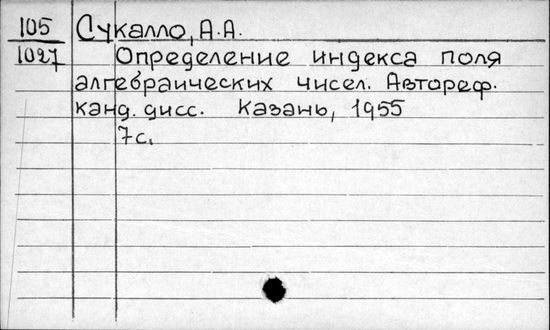 105 Сукалло, А.А.
1027 Определение индекса поля
алгебраических чисел. Автореф.
канд. дисс. Казань, 1955
7с.